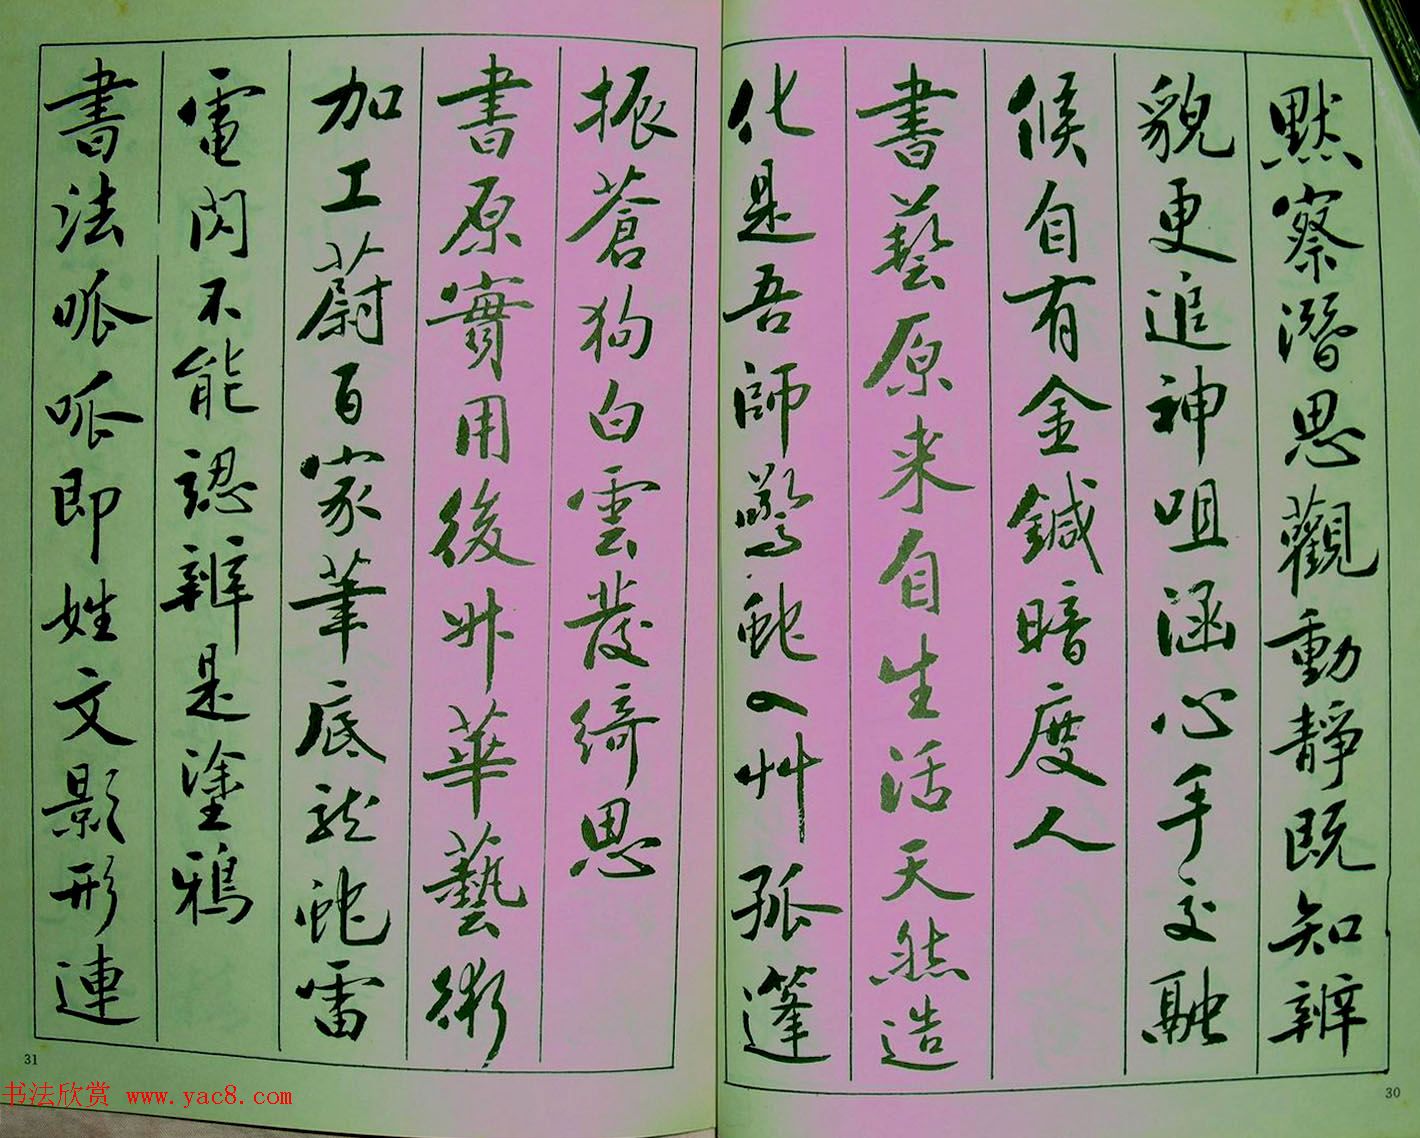 默察潛思觀動靜既知辨
貌更追神咀涵心手交融
候自有金鍼暗度人
書藝原来自生活天然造
化是吾師驚蛇入艸孤蓬
振蒼狗白雲發綺思
書原實用後昇華藝術
加工蔚百家筆底龍蛇雷
電閃不能認辨是塗鴉
書法呱呱即姓文影形連
31
30
书法欣赏 www.yac8.com